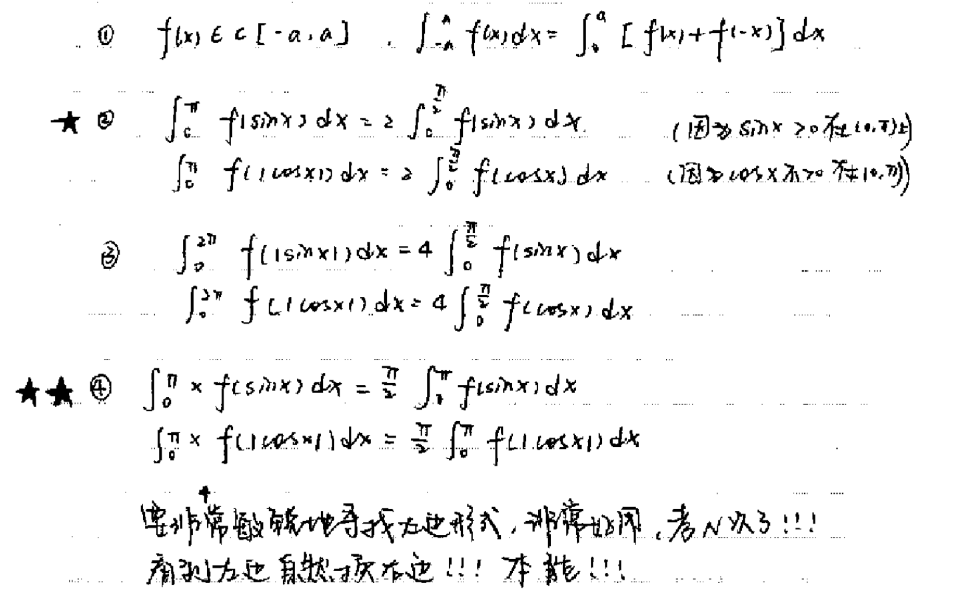 ① f(x) ∈ C[-a,a] . ∫_{-a}^{a} f(x)dx = ∫_0^a [f(x)+f(-x)]dx
★ ② ∫_0^π f(sinx)dx = 2∫_0^{π/2} f(sinx)dx (因为 sinx >0 在(0,π)上)
∫_0^π f(|cosx|)dx = 2∫_0^{π/2} f(cosx)dx (因为 cosx 不>0 在(0,π))
③ ∫_0^{2π} f(|sinx|)dx = 4∫_0^{π/2} f(sinx)dx
∫_0^{2π} f(|cosx|)dx = 4∫_0^{π/2} f(cosx)dx
★★ ④ ∫_0^π x f(sinx)dx = π/2 ∫_0^π f(sinx)dx
∫_0^π x f(|cosx|)dx = π/2 ∫_0^π f(|cosx|)dx
要非常敏锐地寻找左边形式,非常好用,考N次了!!!
看到左边自然换右边!!! 本能!!!